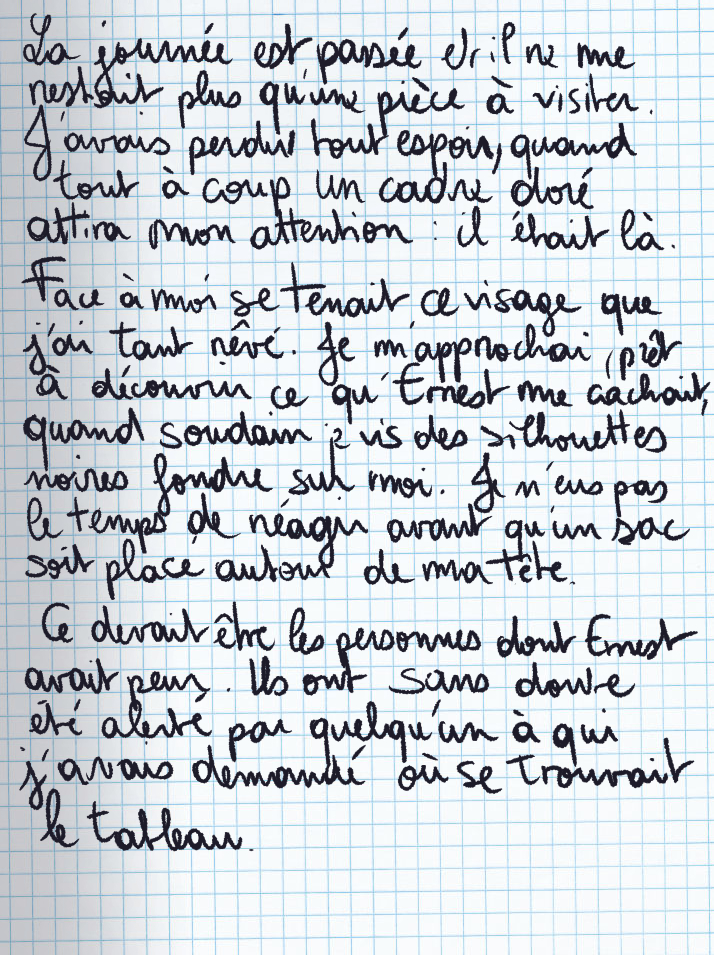 La journée est passée et il ne me
restait plus qu'une pièce à visiter.
J'avais perdu tout espoir, quand
tout à coup un cadre doré
attira mon attention : il était là.
Face à moi se tenait ce visage que
j'ai tant rêvé. Je m'approchai, prêt
à découvrir ce qu'Ernest me cachait,
quand soudain je vis des silhouettes
noires fondre sur moi. Je n'eus pas
le temps de réagir avant qu'un sac
soit placé autour de ma tête.
Ce devait être les personnes dont Ernest
avait peur. Ils ont sans doute
été alerté par quelqu'un à qui
j'avais demandé où se trouvait
le tableau.